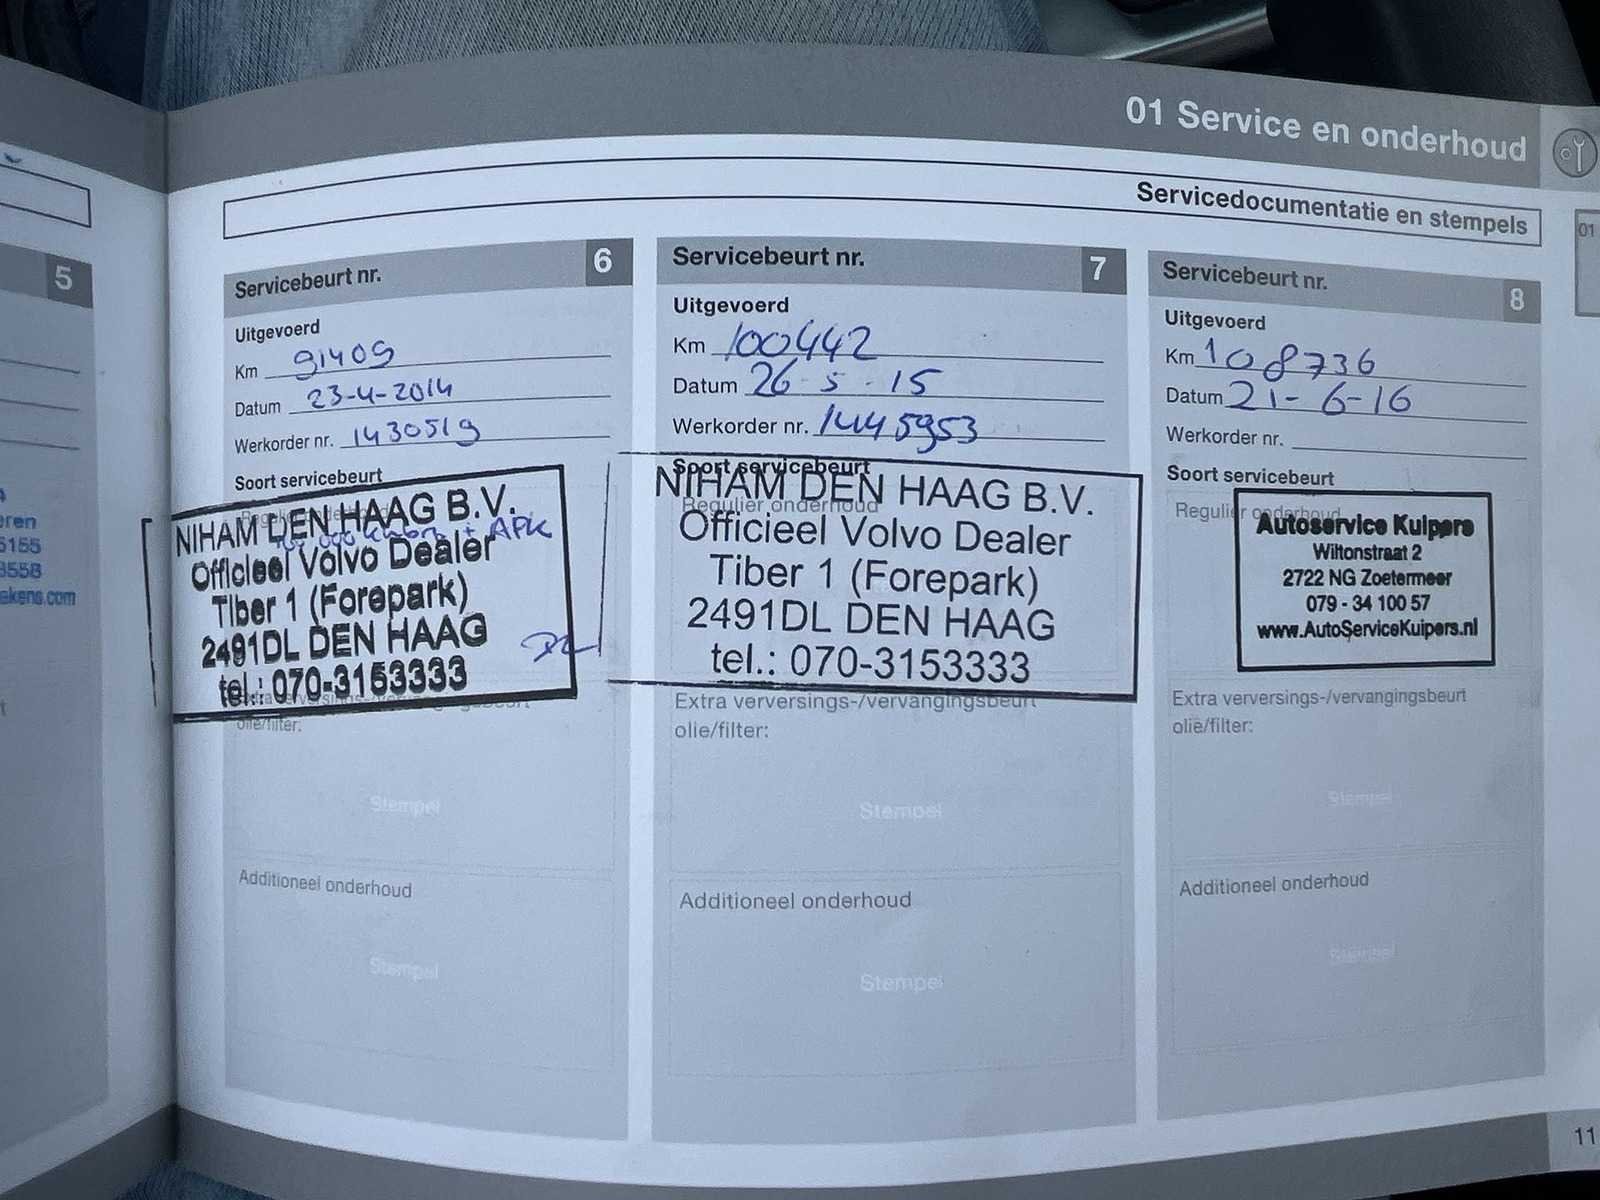 01 Service en onderhoud
Servicedocumentatie en stempels
01
5
eren
5155
3558
ekens.com
Servicebeurt nr. 6
Uitgevoerd
Km 91409
Datum 23-4-2014
Werkorder nr. 1430519
Soort servicebeurt
NIHAM DEN HAAG B.V.
+ APK
Officieel Volvo Dealer
Tiber 1 (Forepark)
2491DL DEN HAAG
tel.: 070-3153333
olie/filter:
Stempel
Additioneel onderhoud
Stempel
Servicebeurt nr. 7
Uitgevoerd
Km 100442
Datum 26-5-15
Werkorder nr. 1445953
Soort servicebeurt
NIHAM DEN HAAG B.V.
Regulier onderhoud
Officieel Volvo Dealer
Tiber 1 (Forepark)
2491DL DEN HAAG
tel.: 070-3153333
Extra verversings-/vervangingsbeurt
olie/filter:
Stempel
Additioneel onderhoud
Stempel
Servicebeurt nr. 8
Uitgevoerd
Km 108736
Datum 21-6-16
Werkorder nr.
Soort servicebeurt
Regulier onderhoud
Autoservice Kuipers
Wiltonstraat 2
2722 NG Zoetermeer
079 - 34 100 57
www.AutoServiceKuipers.nl
Extra verversings-/vervangingsbeurt
olie/filter:
Stempel
Additioneel onderhoud
Stempel
11